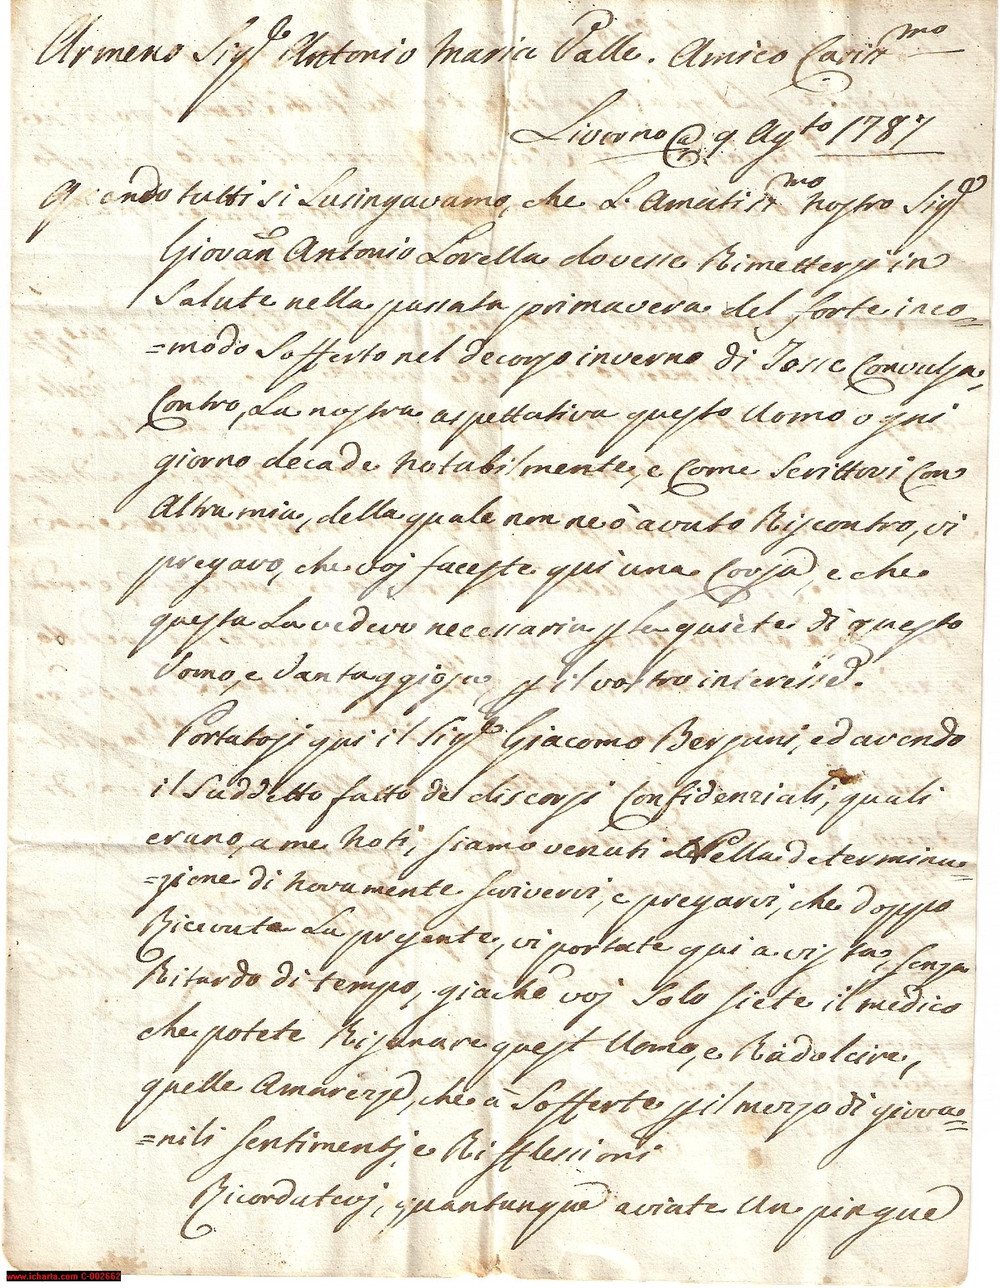 Armeno Sig.e Antonio Maria Valle. Amico Cariss.mo
Livorno 9 Agto 1787
Quando tutti si Lusingavamo, che L'Amatiss.mo nostro Sig.e
Giovan Antonio Lorella dovesse Rimettersi in
Salute nella passata primavera del forte inco=
=modo Sofferto nel decorso inverno di Tosse Convulsa,
Contro, La nostra aspettativa questo Uomo ogni
giorno decade notabilmente, e Come Scrittovi Con
Altra mia, della quale non ne ò avuto Riscontro, vi
pregavo, che voj faceste qui una Corsa, e che
questa La vedevo necessaria p la quiete di questo
Uomo, e Vantaggiosa p il vostro interesse.
Portatosi qui il Sig.e Giacomo Bergani, ed avendo
il Suddetto fatto de discorsi Confidenziali, quali
erano, a me Noti, siamo venuti Nella determina=
=zione di novamente scrivervi, e pregarvi, che doppo
Ricevuta La presente, vi portate qui a vista, senza
Ritardo di tempo, giachè voj Solo siete il medico
che potete Risanare quest Uomo, e Radolcire,
quelle Amarezze, che à Sofferte p il mezzo di giova=
=nili sentimentj, e Rifflessioni
Ricordatevj, quantunque aviate Un pingue
www.icharta.com C-002662